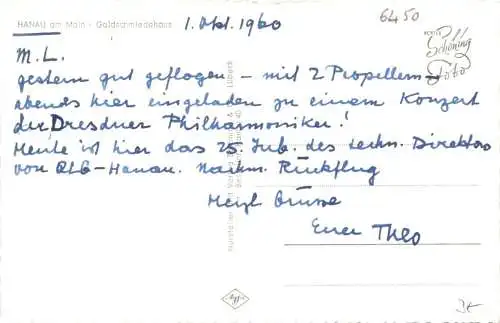 HANAU am Main - Goldschmiedehaus
1. Okt. 1960
6450
Schöning
Foto
M. L.
gestern gut geflogen - mit 2 Propellern -
abends hier eingeladen zu einem Konzert
der Dresdner Philharmoniker!
Heute ist hier das 25. Jub. des techn. Direktors
von Hanau. Nachm. Rückflug
Herzl Grüsse
Euer Theo
Agfa